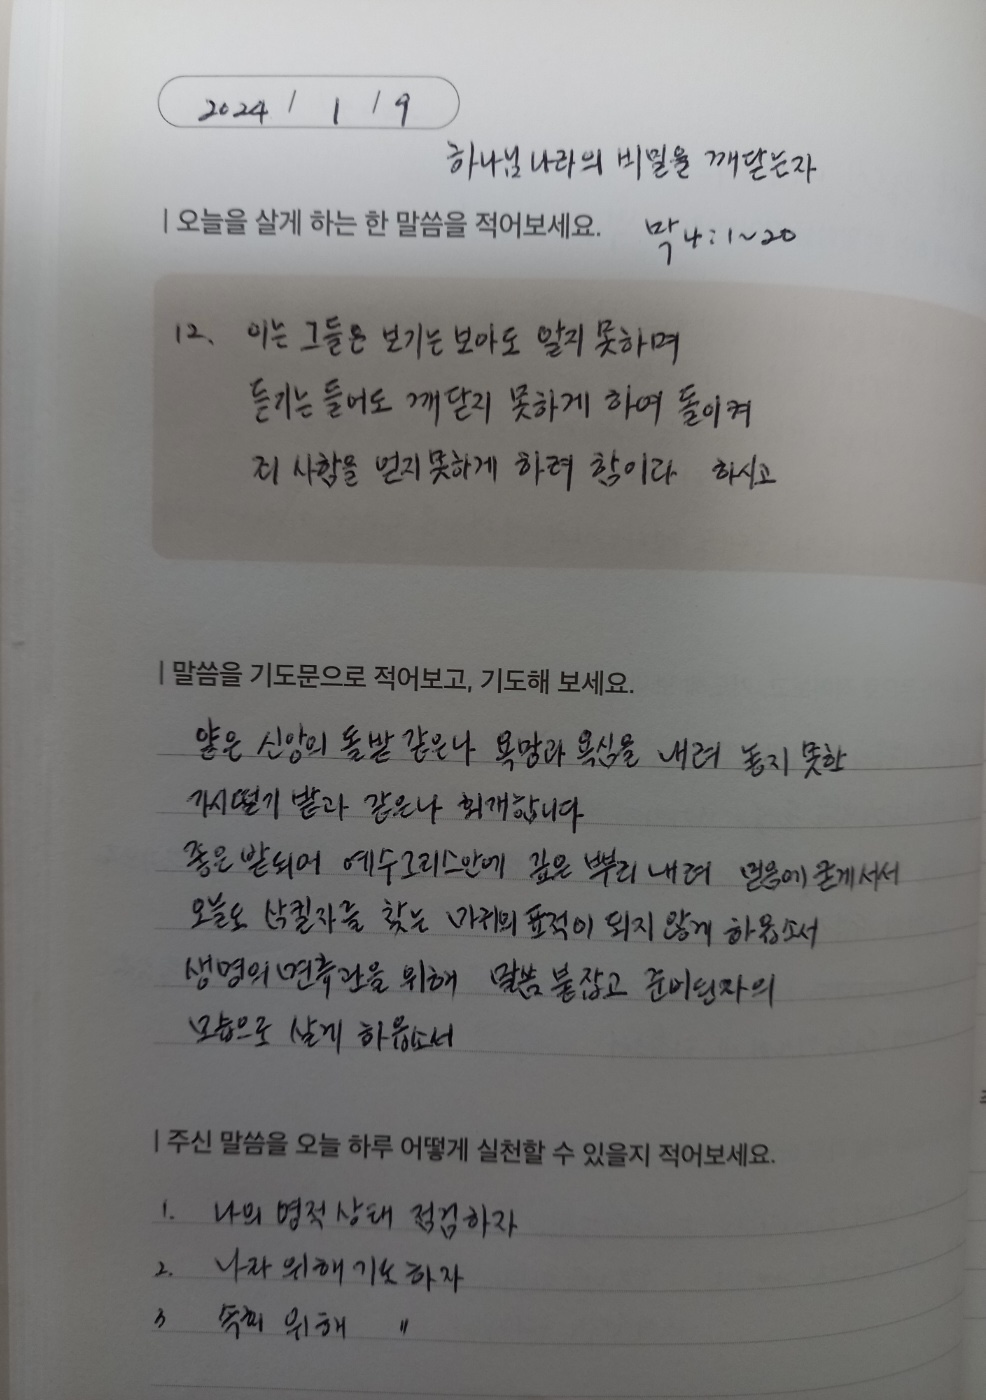 2024 / 1 / 9
하나님나라의 비밀을 깨닫는자
| 오늘을 살게 하는 한 말씀을 적어보세요.
막 4:1~20
12. 이는 그들은 보기는 보아도 알지 못하며
듣기는 들어도 깨닫지 못하게 하여 돌이켜
죄 사함을 얻지못하게 하려 함이라 하시고
| 말씀을 기도문으로 적어보고, 기도해 보세요.
얕은 신앙의 돌밭 같은나 욕망과 욕심을 내려 놓지 못한
가시떨기 밭과 같은나 회개합니다
좋은 밭되어 예수그리스안에 깊은 뿌리 내려 믿음에 굳게서서
오늘도 삼킬자를 찾는 마귀의 표적이 되지 않게 하옵소서
생명의 면류관을 위해 말씀 붙잡고 준비된자의
모습으로 살게 하옵소서
| 주신 말씀을 오늘 하루 어떻게 실천할 수 있을지 적어보세요.
1. 나의 영적 상태 점검하자
2. 나라 위해 기도하자
3 속회 위해 〃